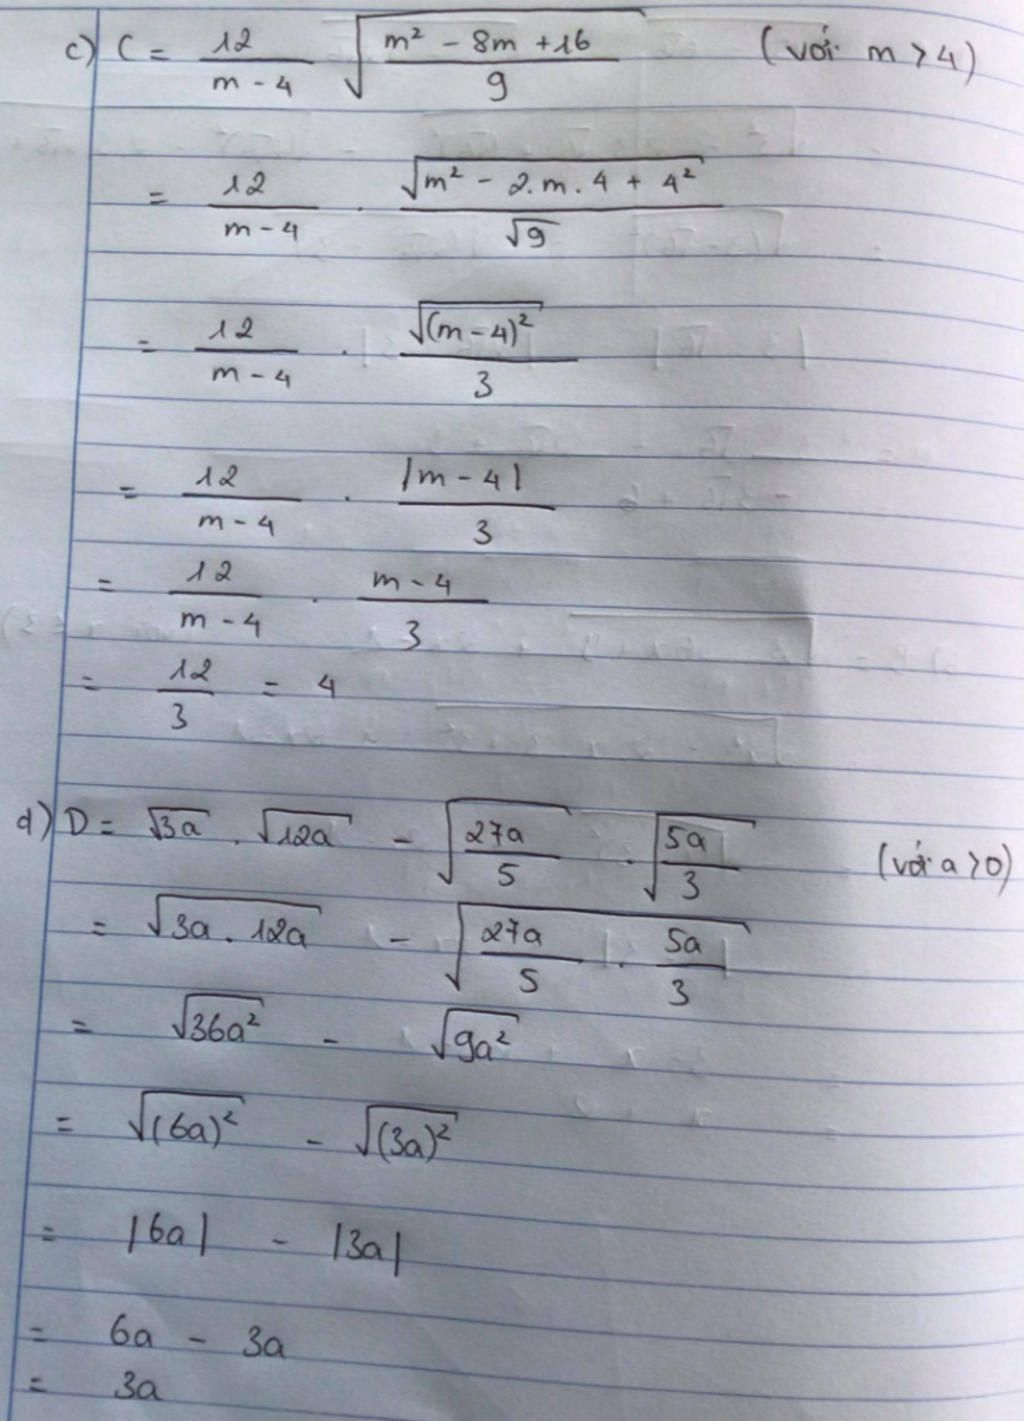 c) C = 12/(m - 4) √((m² - 8m + 16)/9) (với m > 4)
= 12/(m - 4) . √(m² - 2.m.4 + 4²)/√9
= 12/(m - 4) . √((m - 4)²)/3
= 12/(m - 4) . |m - 4|/3
= 12/(m - 4) . (m - 4)/3
= 12/3 = 4
d) D = √(3a) . √(12a) - √(27a/5) . √(5a/3) (với a > 0)
= √(3a . 12a) - √(27a/5 . 5a/3)
= √(36a²) - √(9a²)
= √((6a)²) - √((3a)²)
= |6a| - |3a|
= 6a - 3a
= 3a